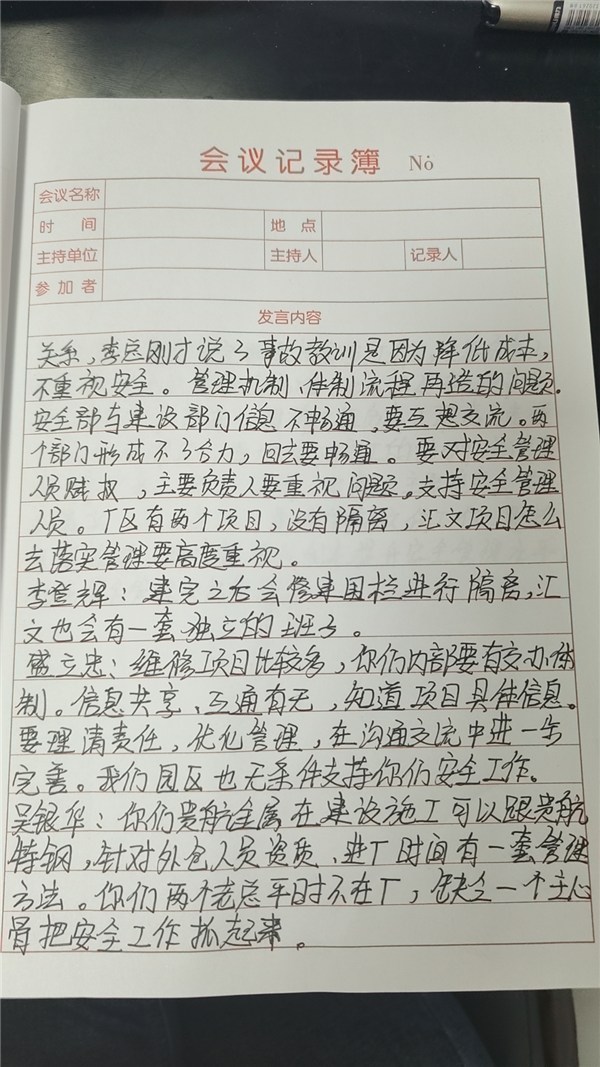 会议记录簿 No
会议名称
时 间 地 点
主持单位 主持人 记录人
参加者
发言内容
关系，李总刚才说了事故教训是因为降低成本，
不重视安全。管理机制、体制流程再造的问题.
安全部与建设部门信息不畅通，要互想交流。两
个部门形成不了合力，回去要畅通。要对安全管理
人员赋权，主要负责人要重视问题。支持安全管理
人员。厂区有两个项目，没有隔离，汇文项目怎么
去落实管理要高度重视。
李登辉：建完之后会修建围栏进行隔离，汇
文也会有一套独立的班子。
盛立忠：维修项目比较多，你们内部要有交办体
制。信息共享、互通有无，知道项目具体信息。
要理清责任，优化管理，在沟通交流中进一步
完善。我们园区也无条件支持你们安全工作。
吴银华：你们贵航金属在建设施工可以跟贵航
铸钢，针对外包人员资质、进厂时间有一套管理
方法。你们两个老总平时不在厂，缺少一个主心
骨把安全工作抓起来。